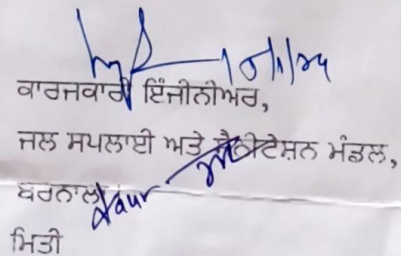 10/1/24
ਕਾਰਜਕਾਰੀ ਇੰਜੀਨੀਅਰ,
ਜਲ ਸਪਲਾਈ ਅਤੇ ਸੈਨੀਟੇਸ਼ਨ ਮੰਡਲ,
ਬਰਨਾਲਾ
ਮਿਤੀ